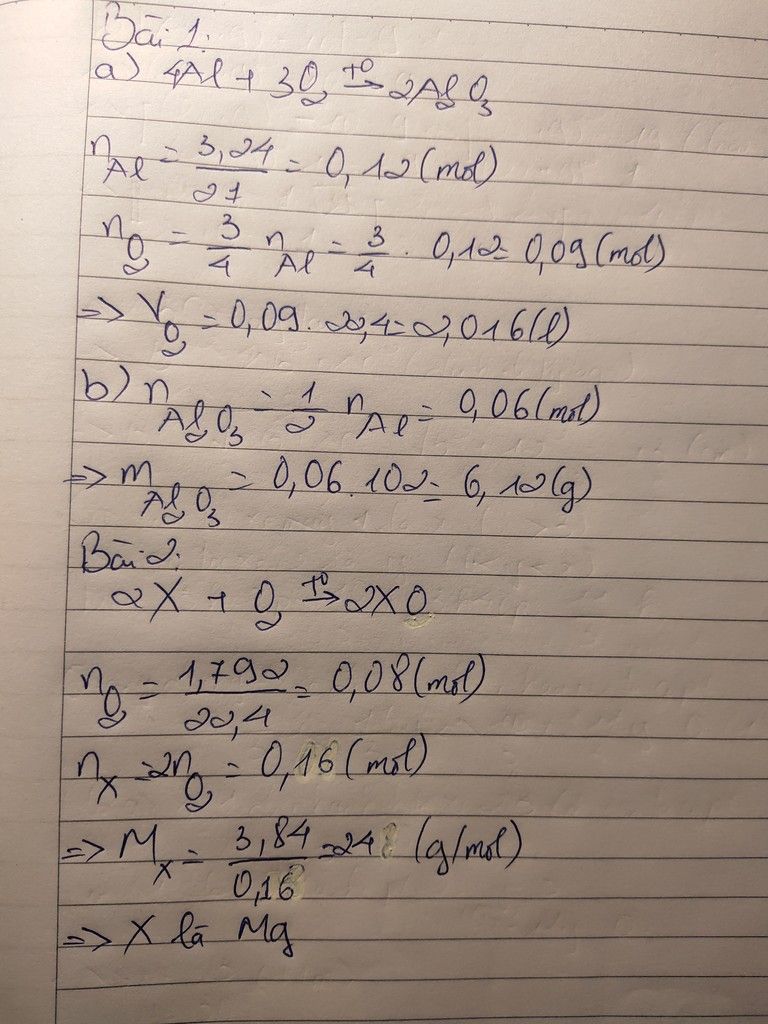 Bài 1:
a) 4Al + 3O₂ →t⁰ 2Al₂O₃
n_Al = 3,24/27 = 0,12 (mol)
n_O₂ = 3/4 n_Al = 3/4 . 0,12 = 0,09 (mol)
=> V_O₂ = 0,09 . 22,4 = 2,016 (l)
b) n_Al₂O₃ = 1/2 n_Al = 0,06 (mol)
=> m_Al₂O₃ = 0,06 . 102 = 6,12 (g)
Bài 2:
2X + O₂ →t⁰ 2XO
n_O₂ = 1,792/22,4 = 0,08 (mol)
n_X = 2n_O₂ = 0,16 (mol)
=> M_X = 3,84/0,16 = 24 (g/mol)
=> X là Mg